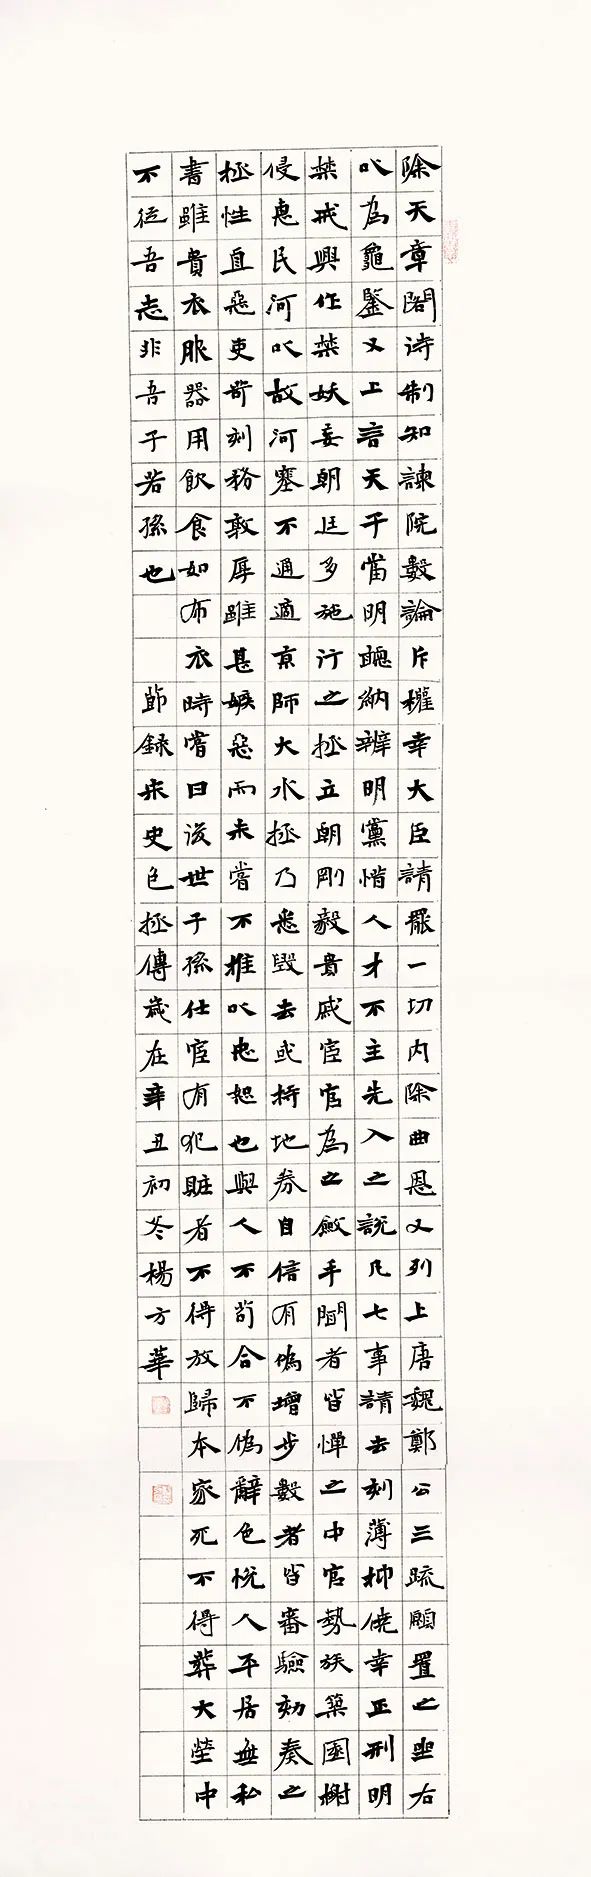 除天章閣诗制知諫院數論斥權幸大臣請罷一切内除曲恩又列上唐魏鄭公三疏願置之坐右
以為龜鑒又上言天子當明聽納辨明黨惜人才不主先入之説凡七事請去刻薄抑僥幸正刑明
禁戒興作禁妖妄朝廷多施行之拯立朝剛毅貴戚宦官為之斂手聞者皆憚之中官勢族築園榭
侵惠民河以故河塞不通適京師大水拯乃悉毀去或持地券自信有偽增步數者皆審驗劾奏之
拯性直惡吏苛刻務敦厚雖甚嫉惡而未嘗不推以忠恕也與人不苟合不偽辭色悦人平居無私
書雖貴衣服器用飲食如布衣時嘗曰後世子孫仕宦有犯贓者不得放歸本家死不得葬大塋中
不從吾志非吾子若孫也 節録宋史包拯傳歲在辛丑初冬楊方華